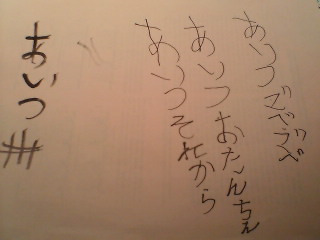 あいつごべらべ
あいつおたんちん
あいつそれから
あいつ#